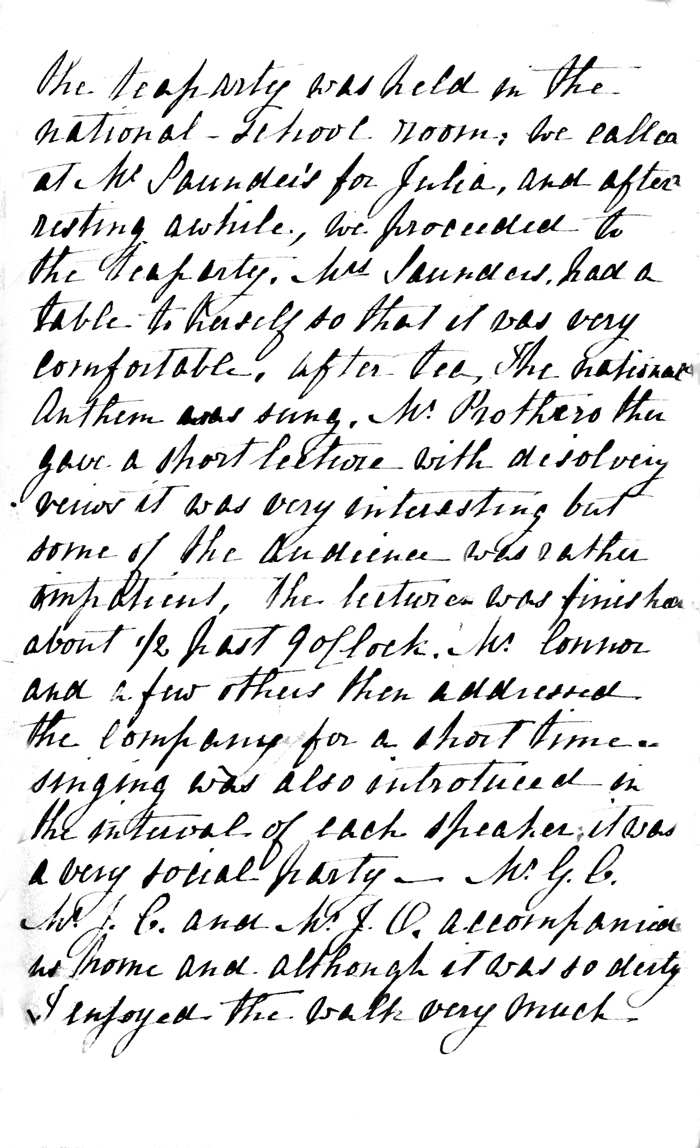 the teaparty was held in the
national - school room; we called
at Mr Saunders's for Julia, and after
resting awhile, we proceeded to
the teaparty. Mrs Saunders. had a
table to herself so that it was very
comfortable. after tea, The national
Anthem was sung. Mr Prothero then
gave a short lecture with disolveing
veiws it was very interesting but
some of the Audience was rather
impatient, the lecture was finished
about 1/2 past 9 oClock. Mr Connor
and a few others then addressed
the Company for a short time -
singing was also introtuced in
the interval of each speaker; it was
a very social party — Mr G. C.
Mr J. C. and Mr J. O. accompanied
us home and although it was so dirty
I enjoyed the walk very much -